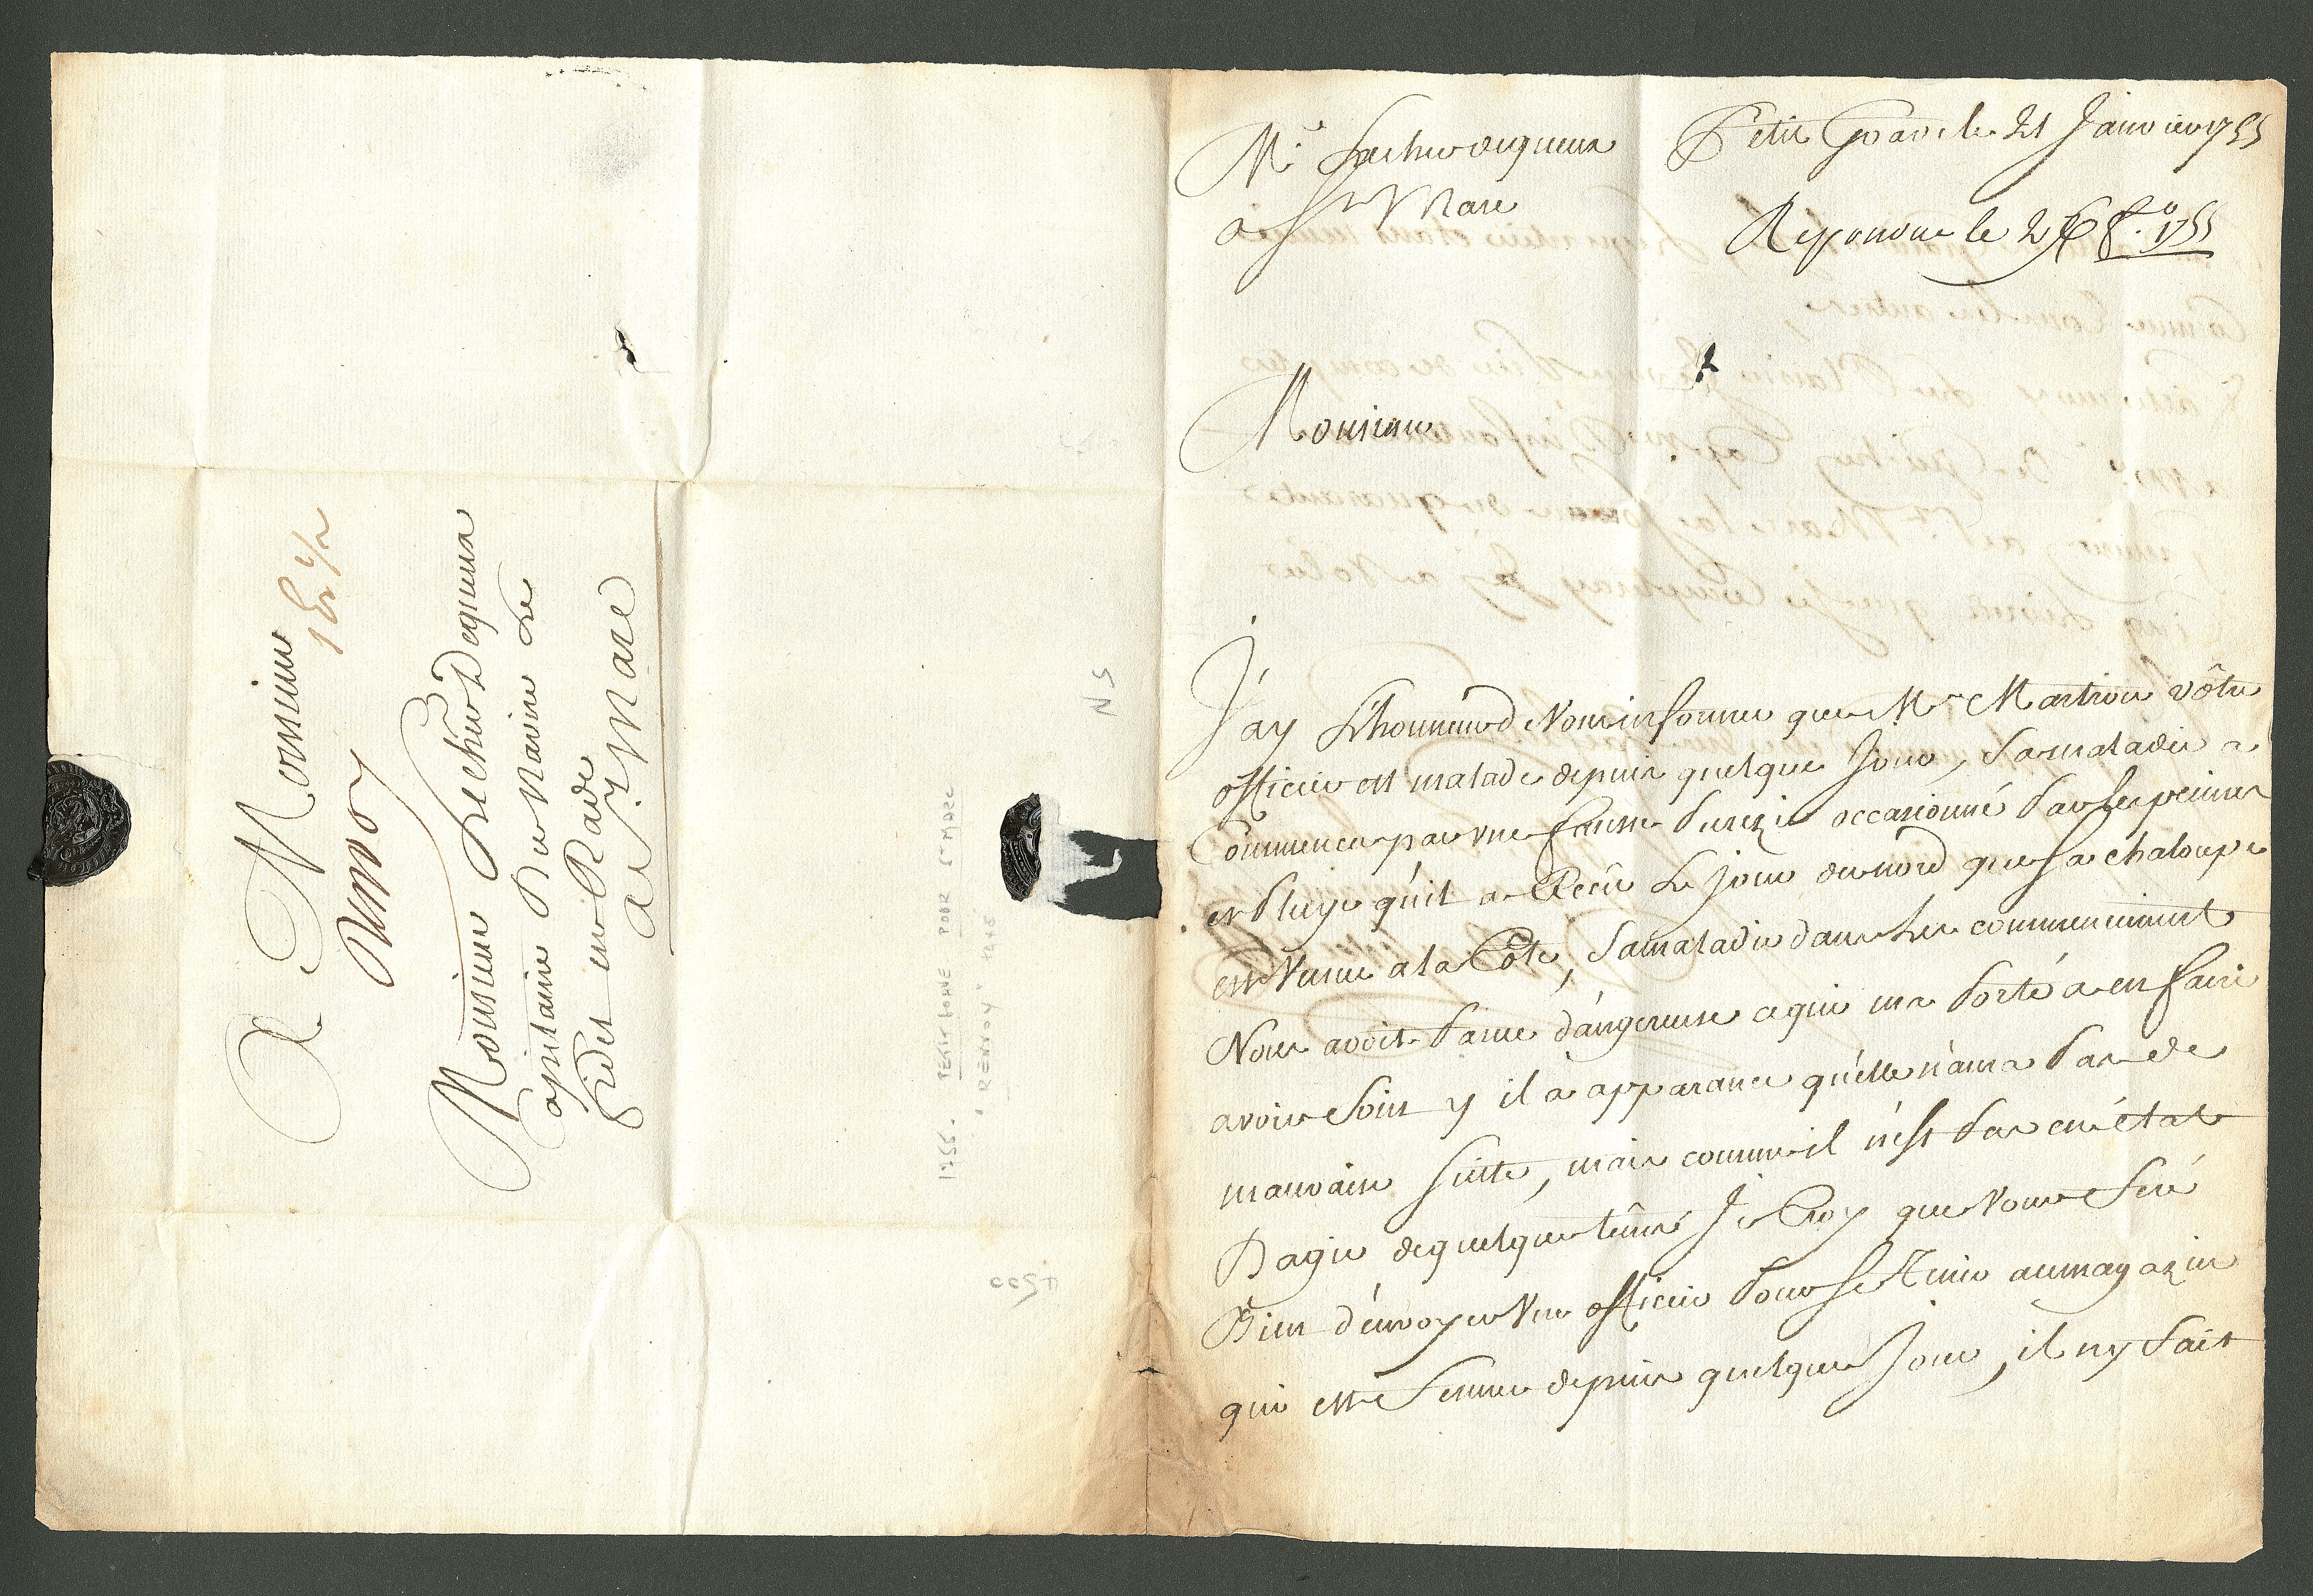 A Monsieur
Monsieur
Capitaine Du Navire Le
en Rade
a St Marc
1755. PETIT GOAVE POUR St MARC
"RENVOY"
NS
Mr
a St Marc
Petit Goave le 21 Janvier 1755
Repondue le 1755
Monsieur
J'ay L'honneur d Vous informer que Mr Martrou vôtre
officier est malade depuis quelque Jour, Sa maladie a
Commencer par une fausse Purezie occasionné Par les peines
et Pluye qu'il a Reçu Le jour du nord que Sa chaloupe
est Venue a la Côte, Sa maladie dans Les commencement
Nous avoit Parue dângereuse ce qui ma Porté a en faire
avoir Soin y il a apparance qu'elle n'aura Pas de
mauvaise Suitte, mais comme il n'est Pas en état
D'agir de quelque têms Je Croy que Vous Feré
Bien d'envoyer Un officier Pour Se Tenir au magazin
qui est Fermé depuis quelque Jour, il ny Fait